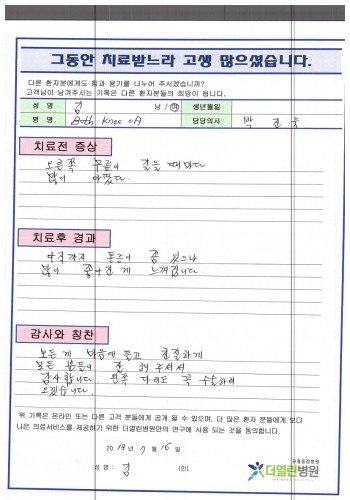 그동안 치료받느라 고생 많으셨습니다.
다른 환자분에게도 힘과 용기를 나누어 주시겠습니까?
고객님이 남겨주시는 기록은 다른 환자분들의 희망이 됩니다.
성 명 김 남 / 여 생년월일
병 명 Both Knee OA 담당의사 박
치료전 증상
오른쪽 무릎이 걸을 때마다
많이 아팠다.
치료후 경과
아직까지 통증이 좀 있으나
많이 좋아진 게 느껴집니다.
감사와 칭찬
모든 게 마음에 들고 친절하게
모든 분들이 잘 해 주셔서
감사합니다. 왼쪽 다리도 꼭 수술하러
오겠습니다.
위 기록은 온라인 또는 다른 고객 분들에게 공개 될 수 있으며, 더 많은 환자 분들에게 보다
나은 의료서비스를 제공하기 위한 더열린병원만의 연구에 사용 되는 것을 동의합니다.
2018년 7월 16일
성 명 : 김 (인)
더열린병원